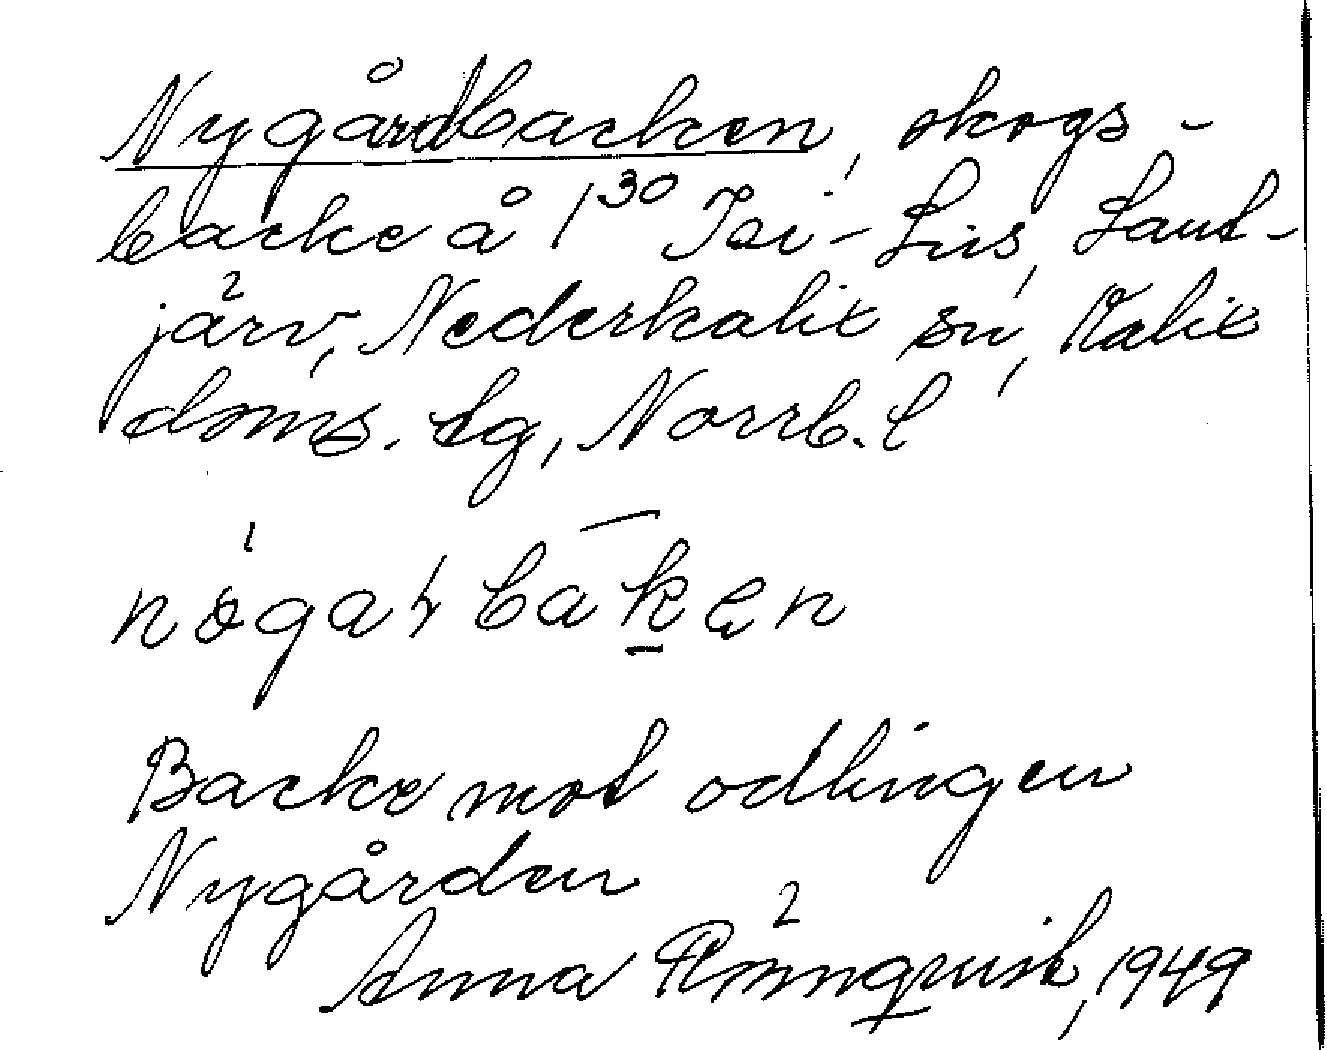 Nygårdbacken, skogs-
backe å 1³⁰ Jor-Lus, Lant-
järv, Nederkalix sn, Kalix
doms. lg, Norrb. l
Backe mot odlingen
Nygården
Anna Rönnquist, 1949